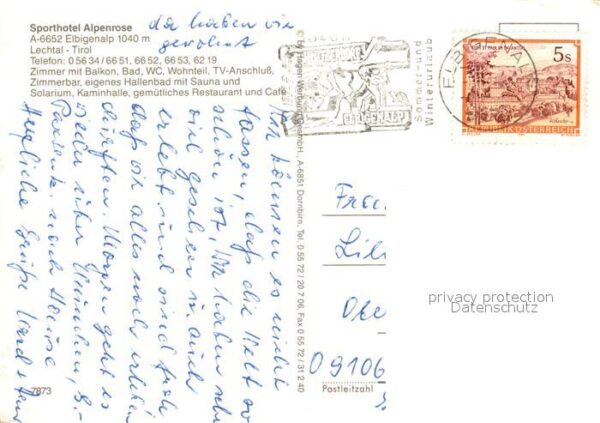 Sporthotel Alpenrose
A-6652 Elbigenalp 1040 m
Lechtal - Tirol
Telefon: 0 56 34 / 66 51, 66 52, 66 53, 62 19
Zimmer mit Balkon, Bad, WC, Wohnteil, TV-Anschluß,
Zimmerbar, eigenes Hallenbad mit Sauna und
Solarium, Kaminhalle, gemütliches Restaurant und Café
da haben wir
gewohnt
Wir können es nicht
fassen, daß die Welt so
schön ist. Wir haben sehr
viel gesehen u. auch
erlebt und sind froh
daß wir alles noch erleben
durften. Morgen geht es
wieder über München,
nach Hause
Herzliche Grüße
7873
© by Hagen Werbung GesmbH., A-6851 Dornbirn, Tel. 0 55 72 / 20 7 06, Fax 0 55 72 / 31 2 40
ELBIGENALP
Sommer- und
Winterurlaub
5 S
REPUBLIK ÖSTERREICH
Frau
Lil
Obe
09106
Postleitzahl
privacy protection
Datenschutz